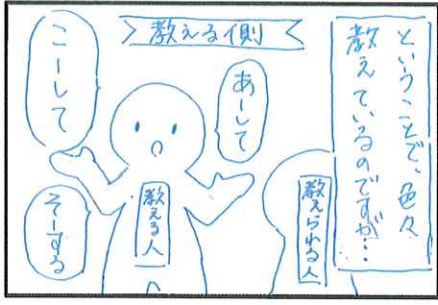 ということで、色々
教えているのですが…
教える側
あーして
こーして
そーする
教える人
教えられる人